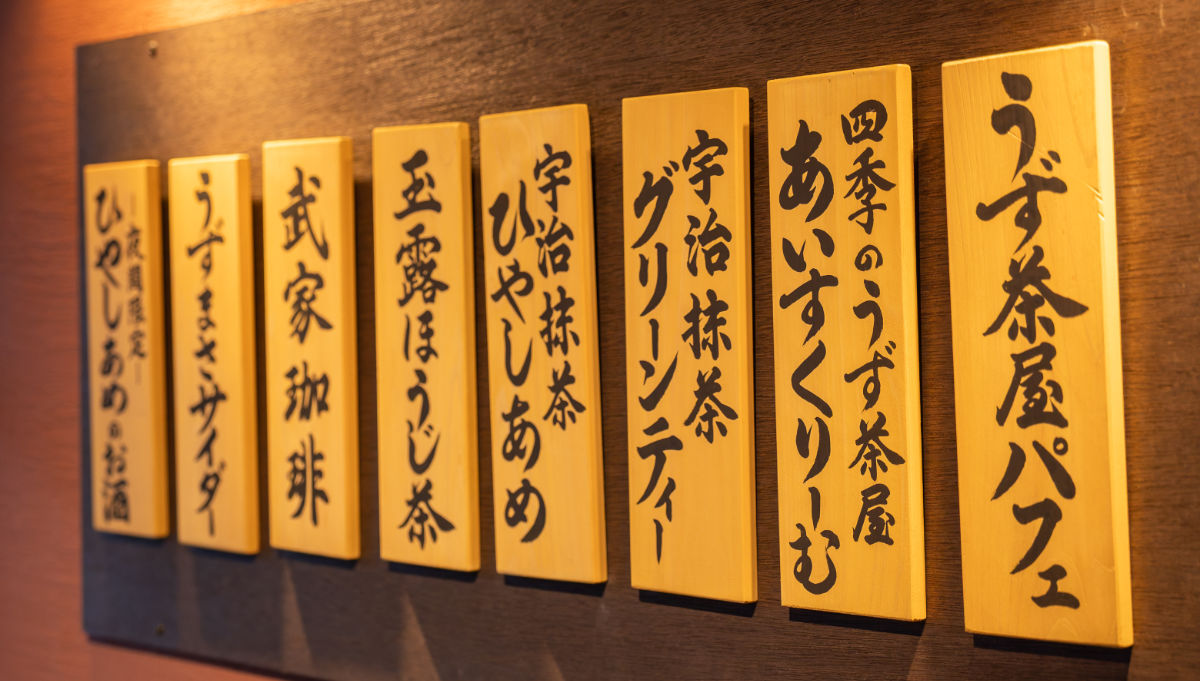 うず茶屋パフェ
四季のうず茶屋
あいすくりーむ
宇治抹茶
グリーンティー
宇治抹茶
ひやしあめ
玉露ほうじ茶
武家珈琲
うずまさサイダー
ー夜間限定ー
ひやしあめのお酒